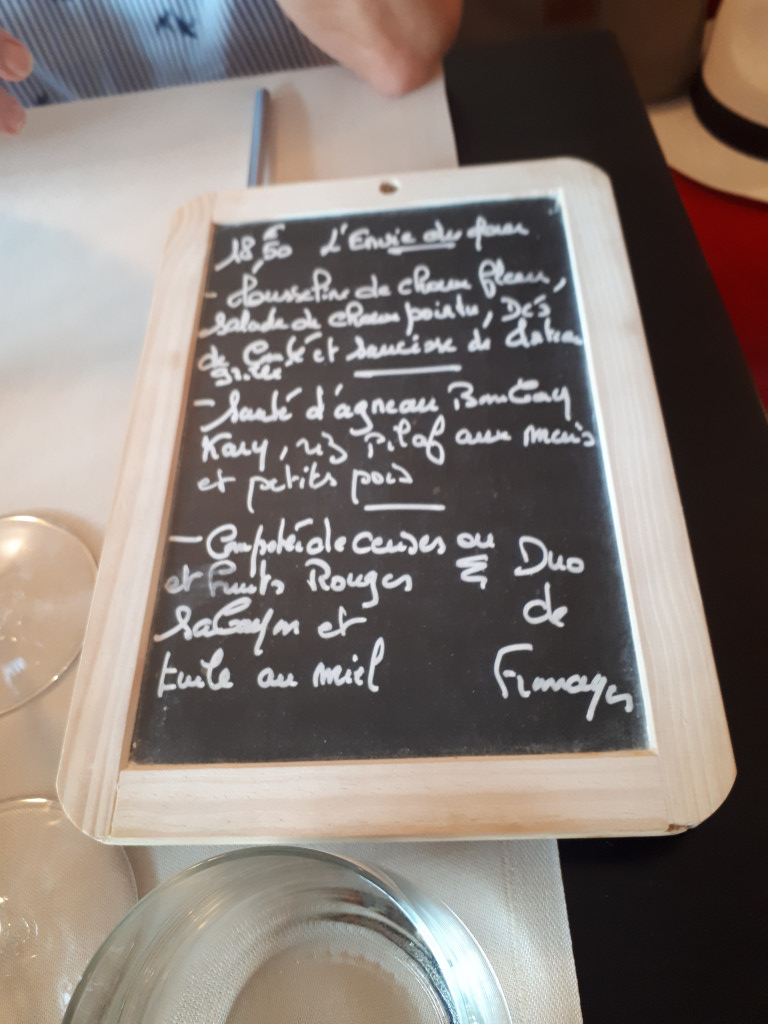 18€50 L'Envie du jour
- Mousseline de choux fleur,
salade de choux pointu, Dés
de Comté et saucisse de
grillé
- Sauté d'agneau Bombay
Kary, riz Pilaf aux maïs
et petits pois
- Compotée de cerises ou Duo
et fruits Rouges de
Sabayon et
tuile au miel Fromages